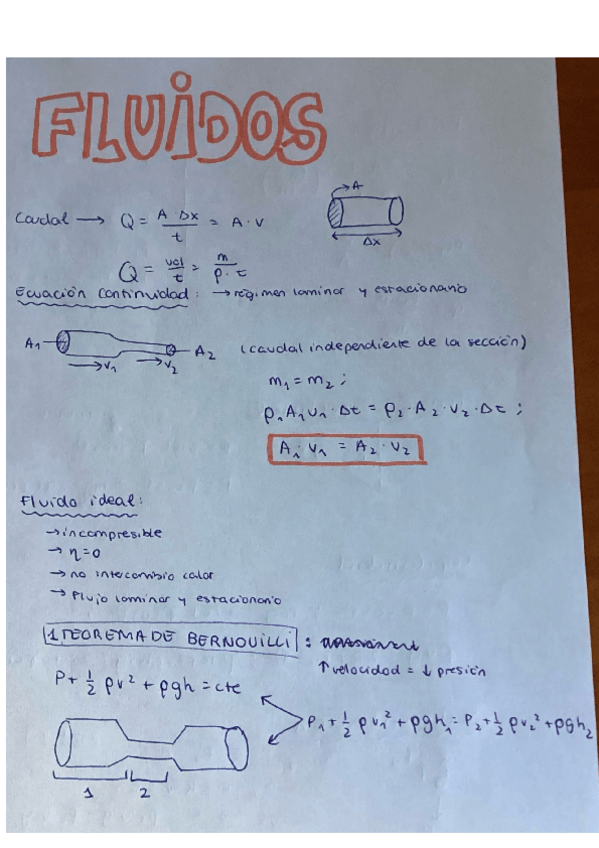 FLUIDOS
Caudal → Q = A · Δx / t = A · v
A
Δx
Q = vol / t = m / ρ · t
Ecuación continuidad: → régimen laminar y estacionario
A₁ A₂ (caudal independiente de la sección)
v₁ v₂
m₁ = m₂ ;
ρ₁ A₁ v₁ · Δt = ρ₂ · A₂ · v₂ · Δt ;
A₁ · v₁ = A₂ · v₂
Fluido ideal:
→ incompresible
→ η = 0
→ no intercambio calor
→ Flujo laminar y estacionario
1 TEOREMA DE BERNOUILLI :
↑ velocidad = ↓ presión
P + 1/2 ρv² + ρgh = cte
P₁ + 1/2 ρv₁² + ρgh₁ = P₂ + 1/2 ρv₂² + ρgh₂
1 2